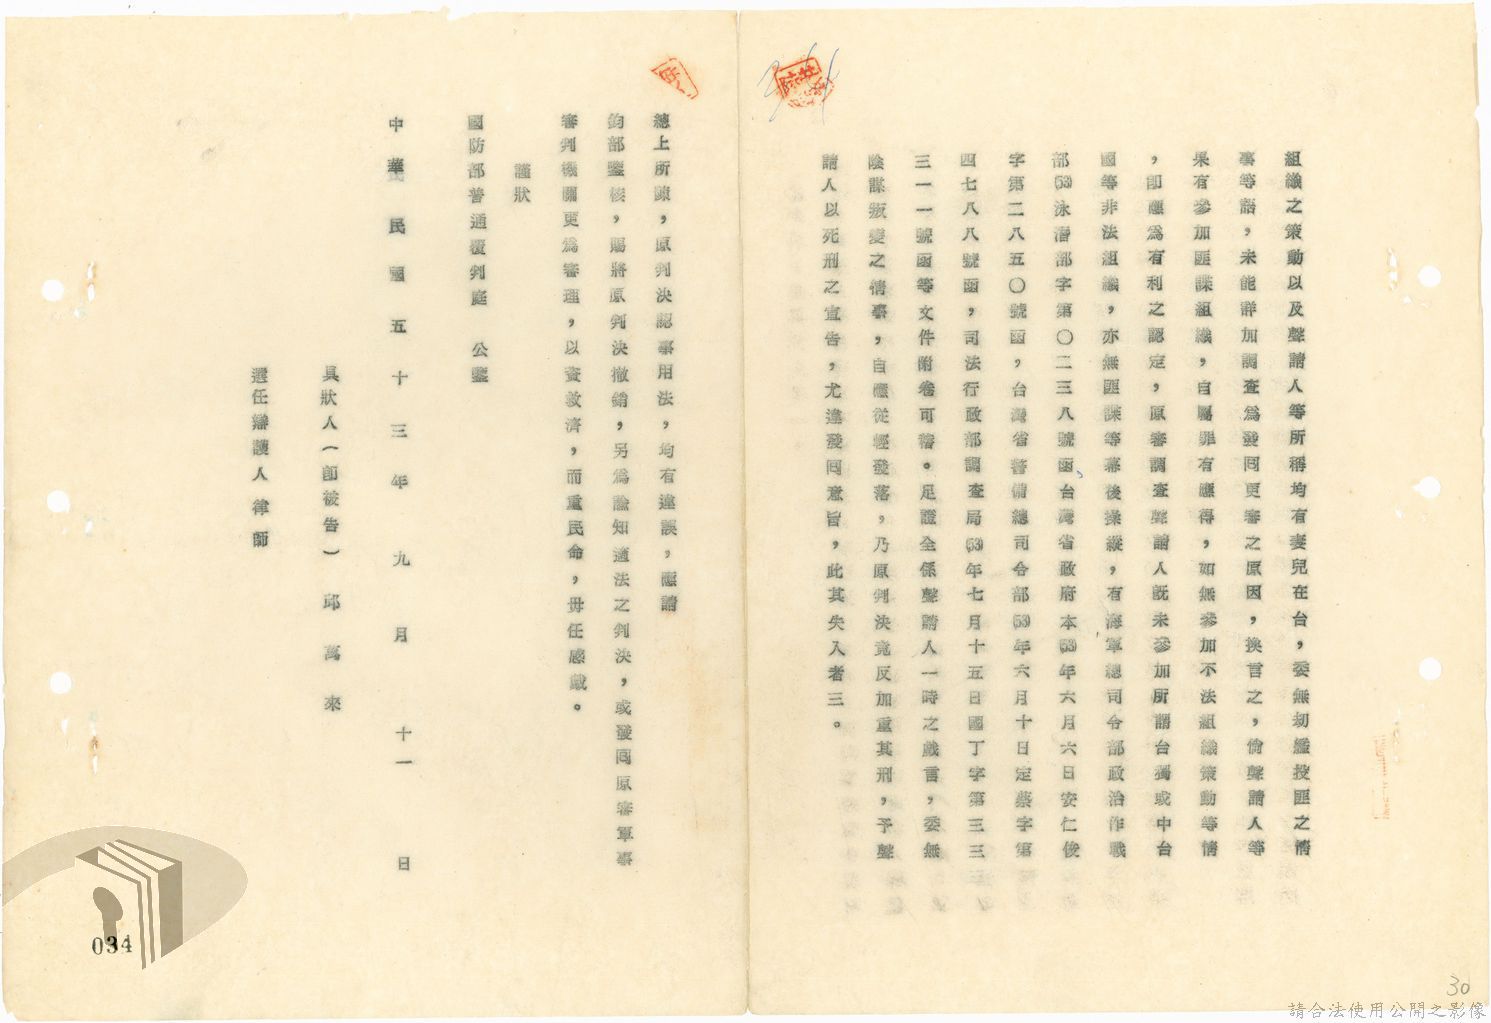 組織之策動以及聲請人等所稱均有妻兒在台，委無刼艦投匪之情
事等語，未能詳加調查為發囘更審之原因，換言之，倘聲請人等
果有參加匪諜組織，自屬罪有應得，如無參加不法組織策動等情
，卽應為有利之認定，原審調查聲請人旣未參加所謂台獨或中台
國等非法組織，亦無匪諜等幕後操縱，有海軍總司令部政治作戰
部(53)泳潛部字第〇二三八號函、台灣省政府本(53)年六月六日安仁俊
字第二八五〇號函，台灣省警備總司令部(53)年六月十日定蔡字第
四七八八號函，司法行政部調查局(53)年七月十五日國丁字第三三
三一一號函等文件附卷可稽。足證全係聲請人一時之戲言，委無
陰謀叛變之情事，自應從輕發落，乃原判決竟反加重其刑，予聲
請人以死刑之宣告，尤違發囘意旨，此其失入者三。
總上所陳，原判決認事用法，均有違誤，應請
鈞部鑒核，賜將原判決撤銷，另為諭知適法之判決，或發囘原審軍事
審判機關更為審理，以資救濟，而重民命，毋任感戴。
謹狀
國防部普通覆判庭　公鑒
中華民國五十三年九月十一日
具狀人(卽被告)邱萬來
選任辯護人律師
034
30
請合法使用公開之影像